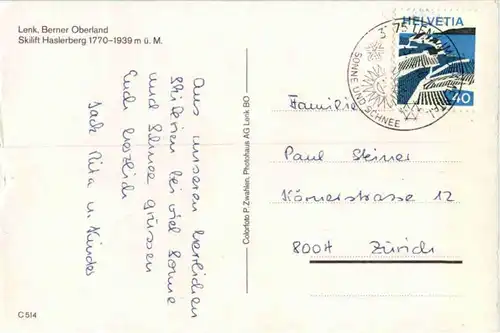 Lenk, Berner Oberland
Skilift Haslerberg 1770–1939 m ü. M.
Aus unseren herrlichen
Skiferien bei viel Sonne
und Schnee grüssen
Euch herzlich
Jack Rita u. Kinder
C 514
Colorfoto P. Zwahlen, Photohaus AG Lenk BO
HELVETIA
40
75 LENK
SONNE UND SCHNEE
Familie
Paul Steiner
Körnerstrasse 12
8004 Zürich